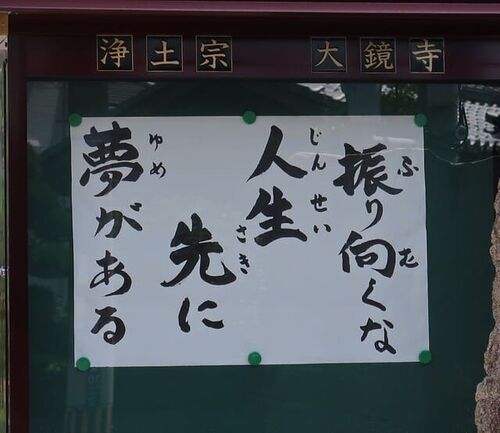 浄土宗 大鏡寺
振り向くな
ふ む
人生
じんせい
先に
さき
夢がある
ゆめ